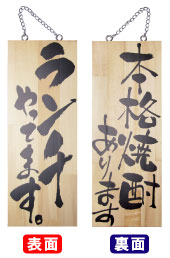 ランチ
やってます。
本格焼酎
あります
表面
裏面